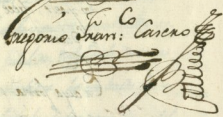 Gregorio Fran:co Casero